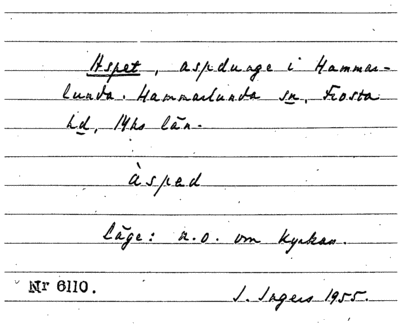 Aspet, aspdunge i Hammar-
lunda. Hammarlunda sn, Frosta
hd, Mhs län.
àsped
Läge: n.o. om kyrkan.
Nr 6110.
J. Ingers 1955.